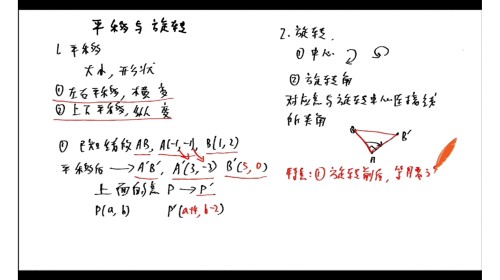 平移与旋转
1. 平移
大小,形状
①左右平移,横变
②上下平移,纵变
① 已知线段AB, A(-1,-1), B(1,2)
平移后 → A'B', A'(3,-3) B'(5,0)
上面的点 P → P'
P(a,b) P'(a+4, b-2)
2. 旋转.
①中心
②旋转角
对应点与旋转中心连接线
的夹角
B'
A
特点:①旋转前后,